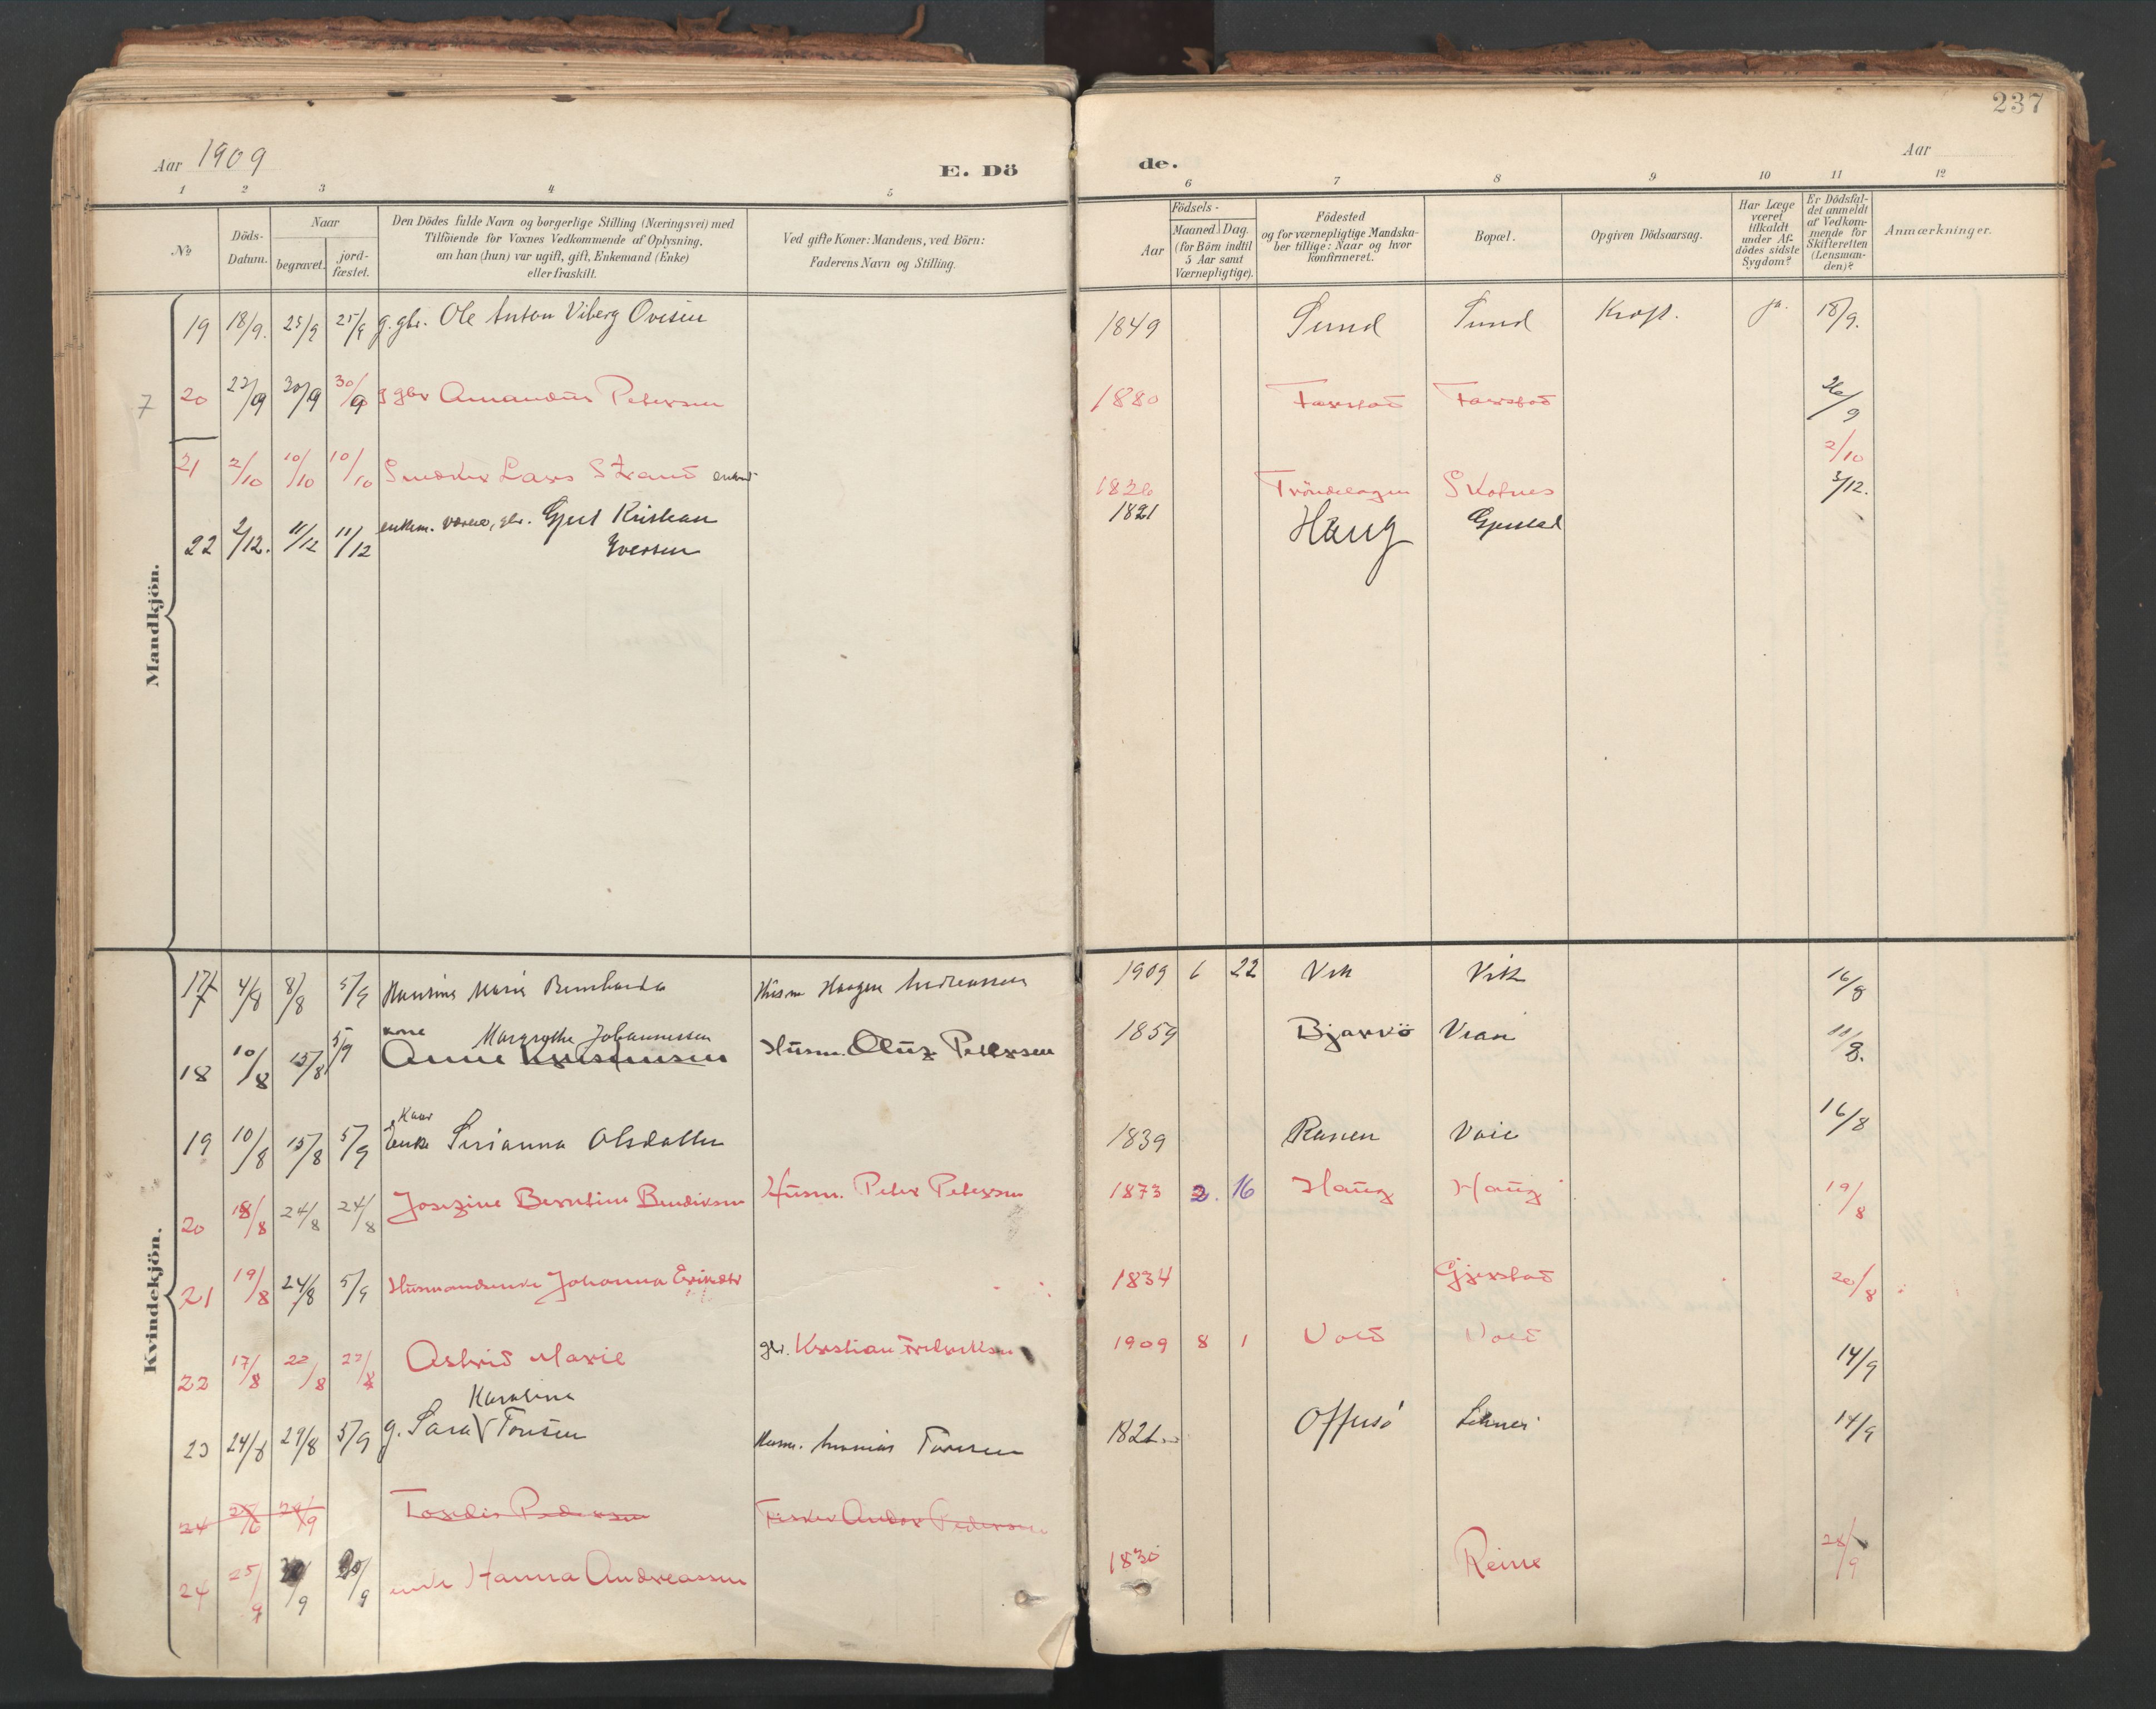 237
Aar 1909
E. Dö
de.
Aar
1 2 3 4 5 6 7 8 9 10 11 12
No
Döds-Datum.
Naar
begravet.
jord-fæstet.
Den Dödes fulde Navn og borgerlige Stilling (Næringsvei) med
Tilföiende for Voxnes Vedkommende af Oplysning,
om han (hun) var ugift, gift, Enkemand (Enke)
eller fraskilt.
Ved gifte Koner: Mandens, ved Börn:
Faderens Navn og Stilling.
Födsels-
Aar
Maaned. Dag.
(for Börn indtil
5 Aar samt
Værnepligtige).
Födested
og for værnepligtige Mandska-
ber tillige: Naar og hvor
Konfirmeret.
Bopæl.
Opgiven Dödsaarsag.
Har Læge
været
tilkaldt
under Af-
dödes sidste
Sygdom?
Er Dödsfal-
det anmeldt
af Vedkom-
mende for
Skifteretten
(Lensman-
den)?
Anmærkninger.
Mandkjön.
19 18/9. 25/9 25/9 g. gbr. Ole Anton Viberg Ovesen 1849 Sund Sund Kræft. ja. 18/9.
7
20 22/9 30/9 30/9 g gbr Amandus Petersen 1880 Farstad Farstad 26/9
21 2/10 10/10 10/10 Snedker Lars Strand enkem 1826 Tröndelagen Skotnes 2/10
22 2/12. 11/12 11/12 enkem. gbr. Gjert Kristian 1821 Haug Gjerstad 3/12.
Iversen
Kvindekjön.
17 4/8 8/8 5/9 Hansine Marie Bernharda Husm Haagen Andreassen 1909 6 22 Vik Vik 16/8
kone Margrethe Johannessen
18 10/8 15/8 5/9 Anne Kristensen Husm. Oluf Petersen 1859 Bjarkö Vian 11/8.
Kaar
19 10/8 15/8 5/9 Enke Sirianna Olsdatter 1839 Ranen Voie 16/8
20 18/8 24/8 24/8 Josefine Berntine Bendiksen Husm. Peter Petersen 1873 2. 16 Haug Haug 19/8
21 19/8 24/8 5/9 Husmandsenke Johanna Eriksdtr 1834 Gjerstad 20/8
22 17/8 22/8 22/8 Astrid Marie gbr. Kristian Fredriksen 1909 8 1 Vold Vold 14/9
Karoline
23 24/8 29/8 5/9 g. Sara V Tonsen Husm. Ananias Tonsen 1821 Offersö 14/9
24 Tordis Pedersen Fisker Andor Pedersen
24 25/9 30/9 enke Hanna Andreassen 1830 Reine 28/9